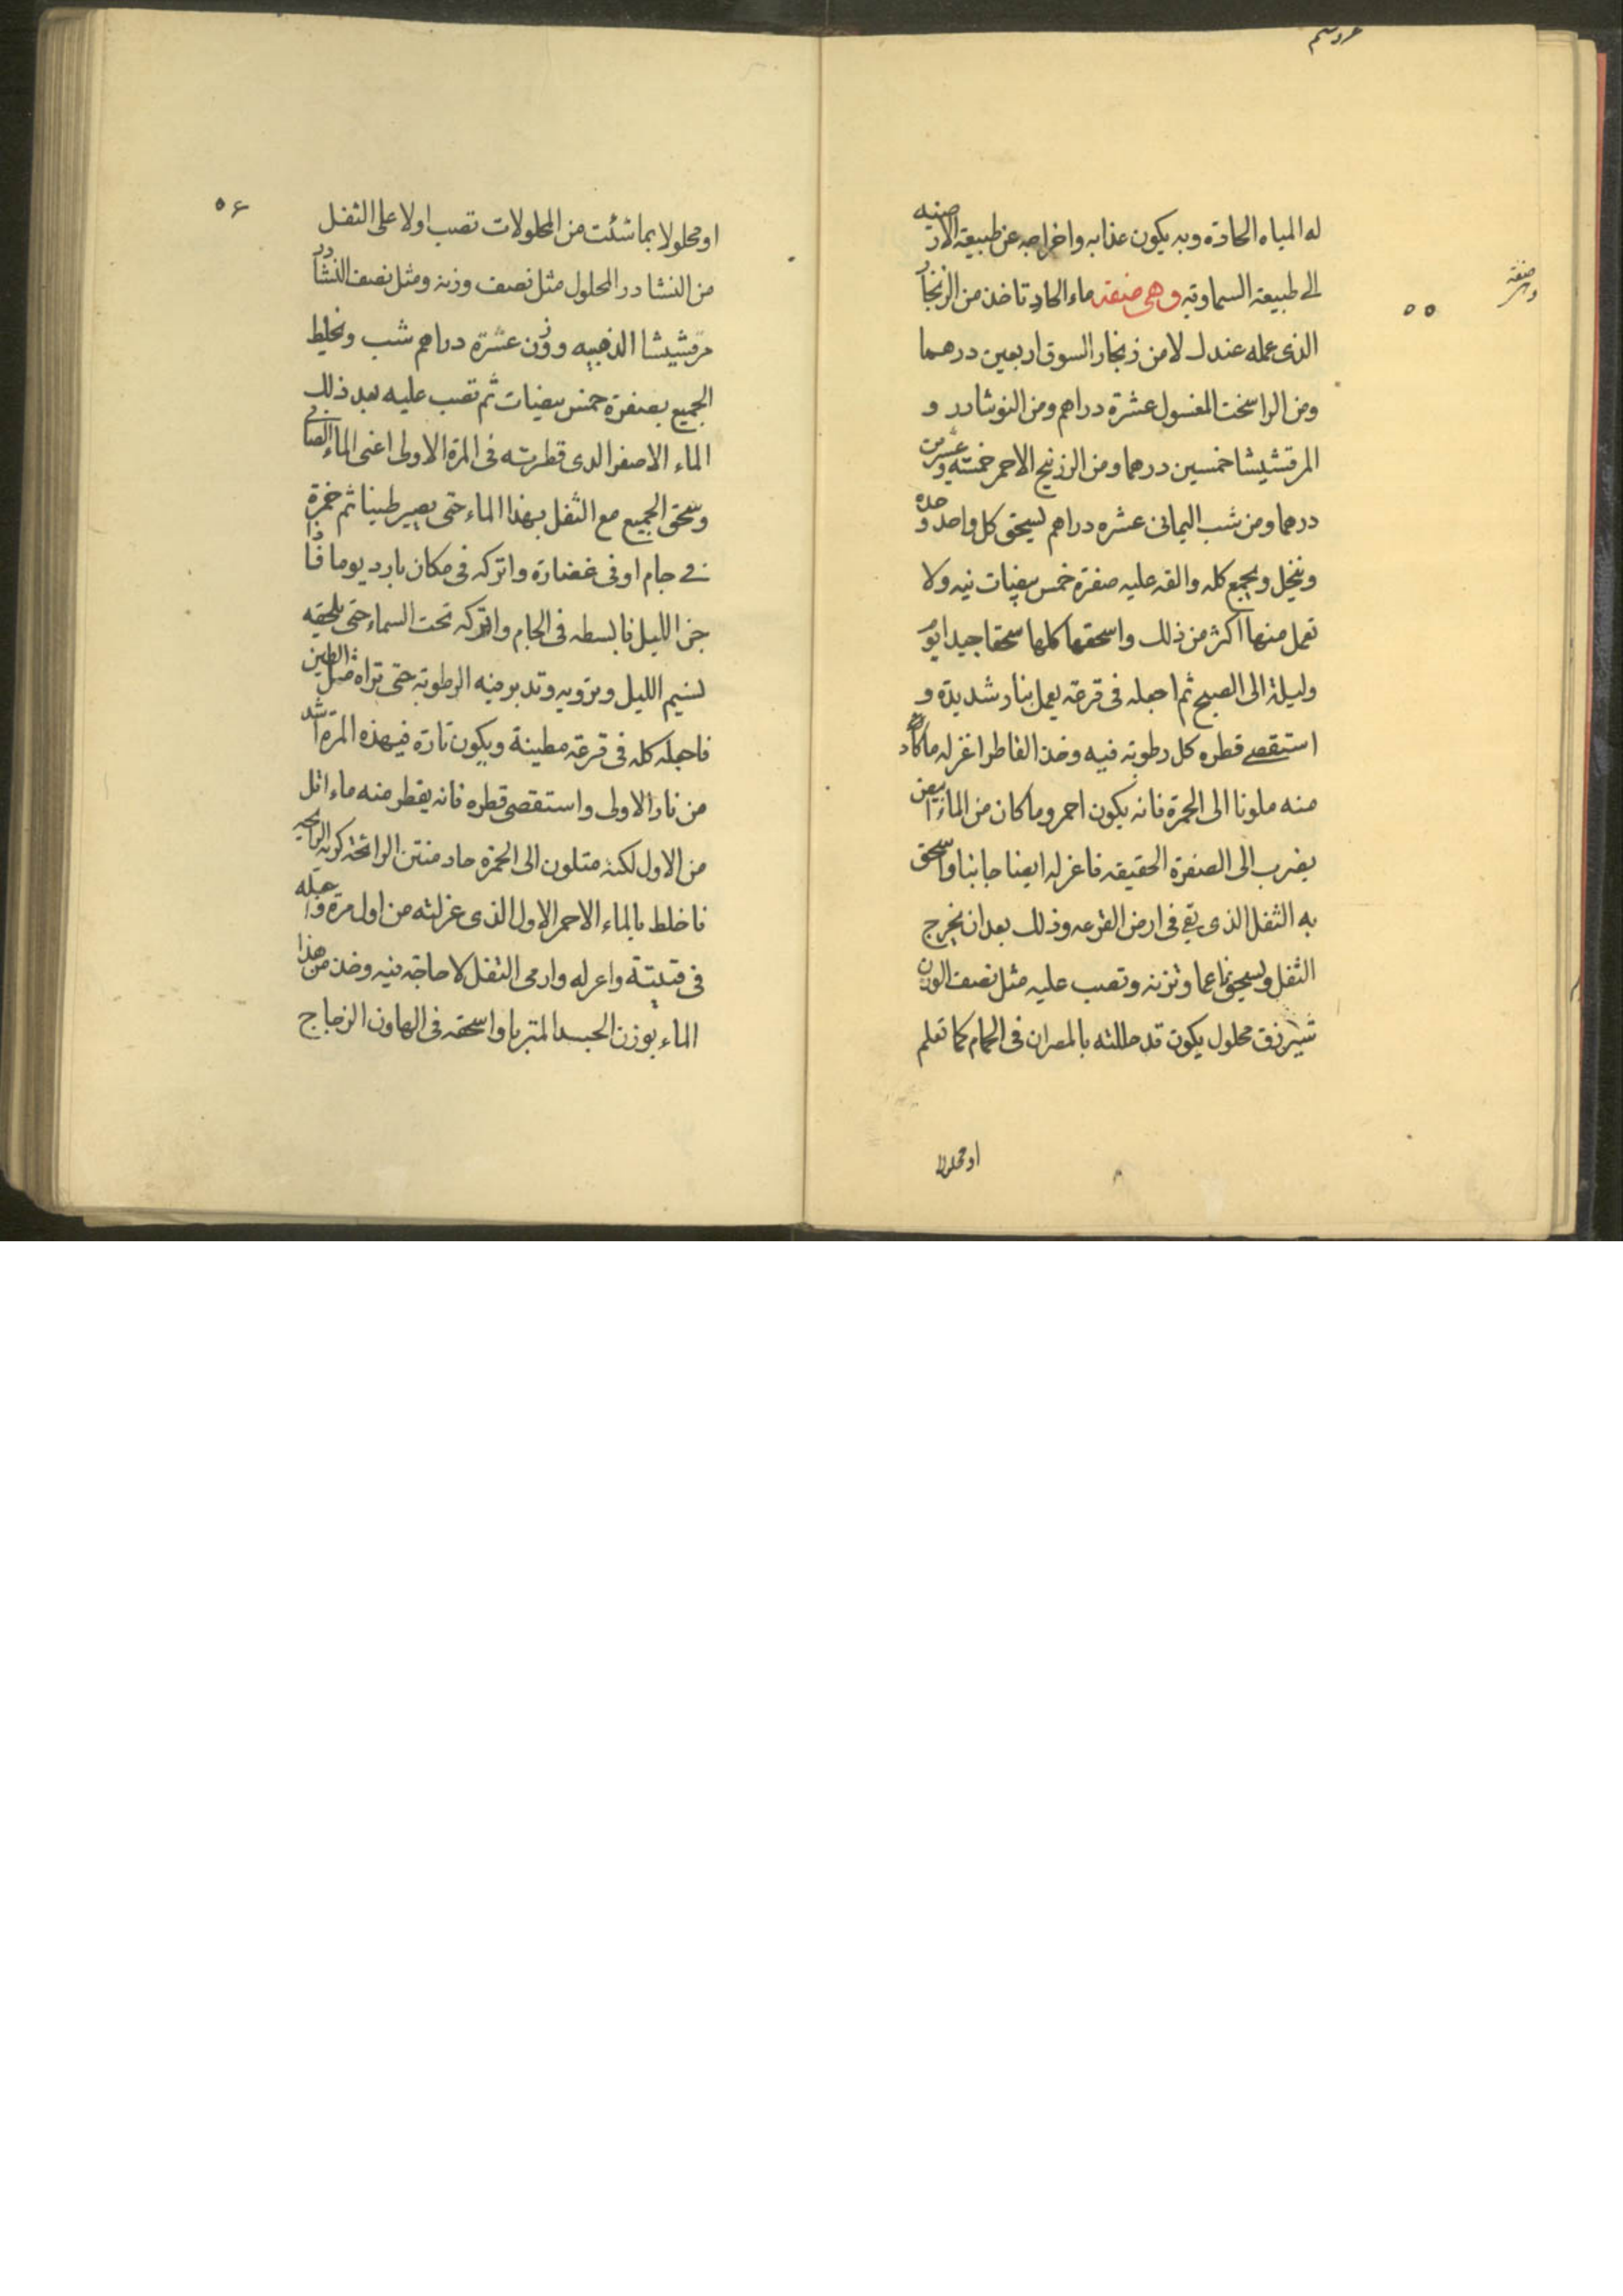 له المياه الحادة وبه يكون عذابه واخراجه عن طبيعة الارضيه
الى طبيعة السماوية وهى صنعة ماء الحاد تاخذ من الزنجار
الذى عمله عندك لا من زنجار السوق اربعين درهما
ومن الراسخت المغسول عشرة دراهم ومن النوشادر و
المرقشيشا خمسين درهما ومن الزرنيخ الاحمر خمسة وعشرين
درهما ومن شب اليمانى عشره دراهم يسحق كل واحد وحده
وينخل ويجمع كله والقه عليه صفرة خمس بيضات نيه ولا
تعمل منها اكثر من ذلك واسحقها كلها سحقا جيدا يوم
وليلة الى الصبح ثم اجعله فى قرعة يعمل بنار شديدة و
استقصى قطره كل رطوبة فيه وخذ القاطر اعزله ما كان
منه ملونا الى الحمرة فانه يكون احمر وما كان من الماء ابيض
يضرب الى الصفرة الحقيقه فاعزله ايضا جانبا واسحق
به الثفل الذى بقى فى ارض القرعه وذلك بعد ان يخرج
الثفل ويسحق ناعما وتزنه وتصب عليه مثل نصف الوزن
شيرزق محلول يكون قد حللته بالمصران فى الحمام كما تعلم
او محلولا
صنعة
٥٥
٥٤
او محلولا بما شئت من المحلولات تصب اولا على الثفل
من النشادر المحلول مثل نصف وزنه ومثل نصف النشادر
مرقشيشا الذهبيه ووزن عشرة دراهم شب ويخلط
الجميع بصفرة خمس بيضات ثم تصب عليه بعد ذلك
الماء الاصفر الدى قطرته فى المرة الاولى اعنى الماء الصافى
وسحق الجميع مع الثفل بهذا الماء حتى يصير طينا ثم خمرة
فى جام او فى غضارة واتركه فى مكان بارد يوما فاذا
جن الليل فابسطه فى الجام واتركه تحت السماء حتى يلحقه
نسيم الليل ويرويه وتدبر فيه الرطوبة حتى تراه مثل الطين
فاجعله كله فى قرعة مطينة ويكون ناره فيهذه المرة اشد
من نار الاولى واستقصى قطره فانه يقطر منه ماء اقل
من الاول لكنه متلون الى الحمرة حاد منتن الرائحة كريه الرائحيه
فاخلط بالماء الاحمر الاول الذى عزلته من اول مرة واجعله
فى قنينة واعزله وارمى الثفل لا حاجة فيه وخذ من هذا
الماء بوزن الجسد المتبربا واسحقه فى الهاون الزجاج